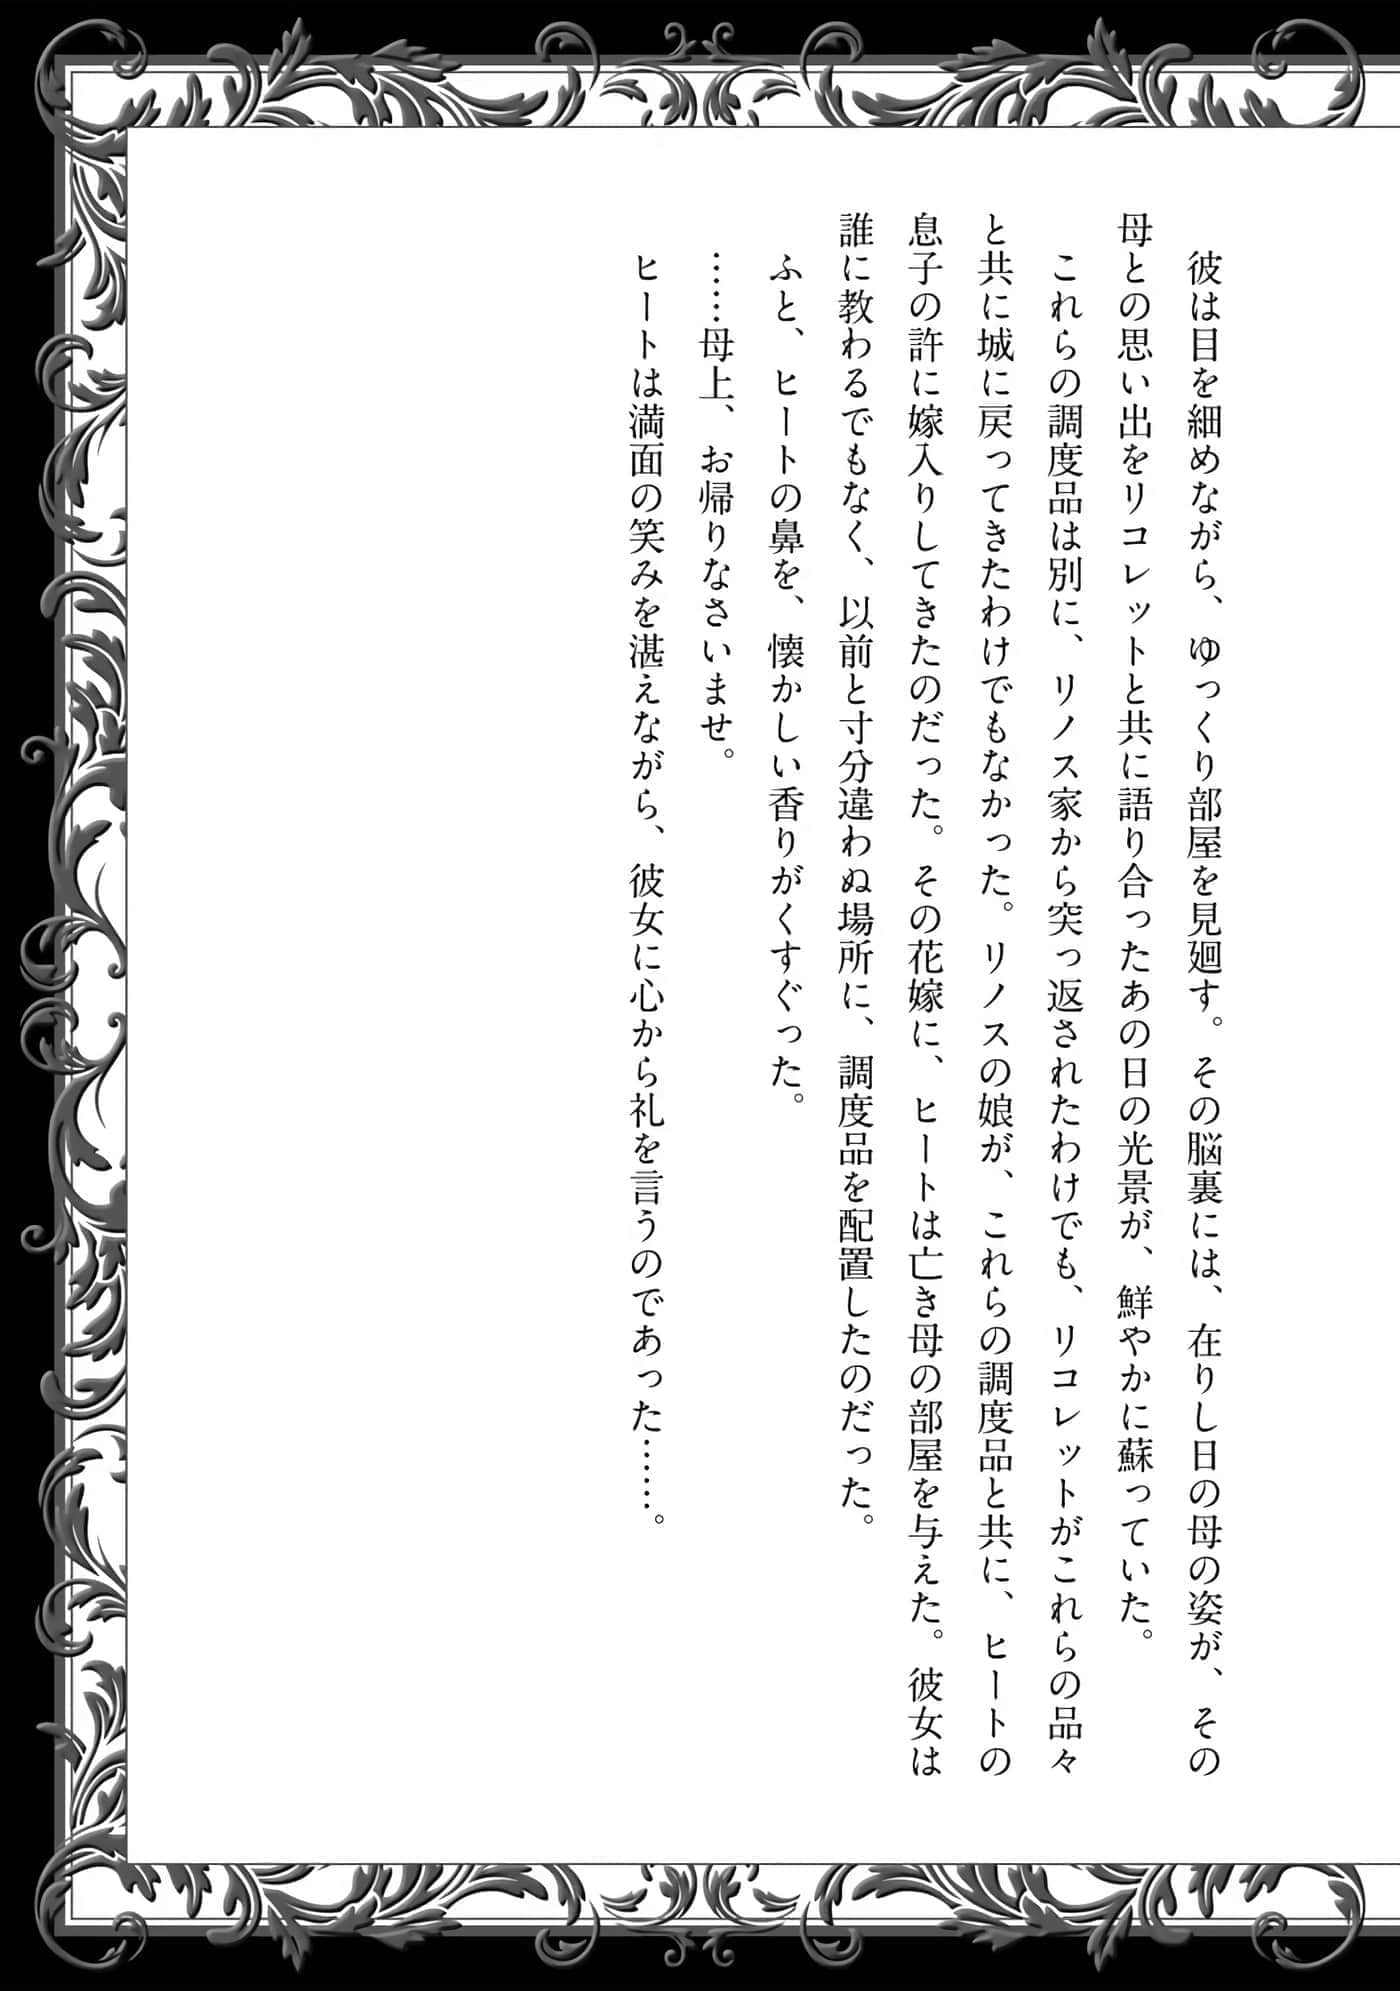 彼は目を細めながら、ゆっくり部屋を見廻す。その脳裏には、在りし日の母の姿が、その
母との思い出をリコレットと共に語り合ったあの日の光景が、鮮やかに蘇っていた。
これらの調度品は別に、リノス家から突っ返されたわけでも、リコレットがこれらの品々
と共に城に戻ってきたわけでもなかった。リノスの娘が、これらの調度品と共に、ヒートの
息子の許に嫁入りしてきたのだった。その花嫁に、ヒートは亡き母の部屋を与えた。彼女は
誰に教わるでもなく、以前と寸分違わぬ場所に、調度品を配置したのだった。
ふと、ヒートの鼻を、懐かしい香りがくすぐった。
……母上、お帰りなさいませ。
ヒートは満面の笑みを湛えながら、彼女に心から礼を言うのであった……。